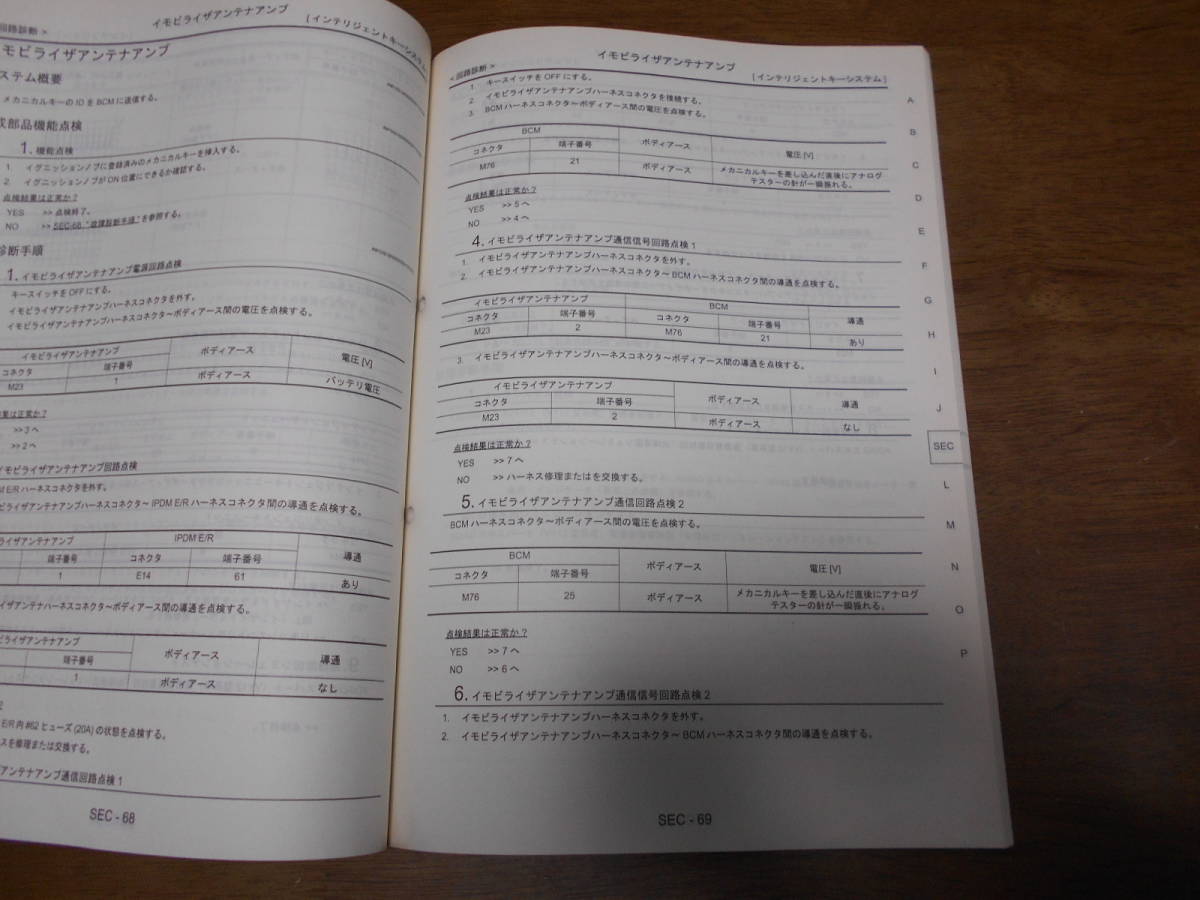 イモビライザアンテナアンプ
回路診断 >
[ インテリジェントキーシステム
モビライザアンテナアンプ
ステム概要
メカニカルキーの ID を BCM に送信する。
部品機能点検
1. 機能点検
1. イグニッションノブに登録済みのメカニカルキーを挿入する。
2. イグニッションノブが ON 位置にできるか確認する。
点検結果は正常か？
YES >> 点検終了。
NO >> SEC-68, "故障診断手順" を参照する。
診断手順
1. イモビライザアンテナアンプ電源回路点検
キースイッチを OFF にする。
イモビライザアンテナアンプハーネスコネクタを外す。
イモビライザアンテナアンプハーネスコネクタ～ボディアース間の電圧を点検する。
イモビライザアンテナアンプ ボディアース 電圧 [V]
コネクタ 端子番号
M23 1 ボディアース バッテリ電圧
結果は正常か？
>> 3 へ
>> 2 へ
イモビライザアンテナアンプ回路点検
M E/R ハーネスコネクタを外す。
ビライザアンテナアンプハーネスコネクタ～ IPDM E/R ハーネスコネクタ間の導通を点検する。
ライザアンテナアンプ IPDM E/R 導通
端子番号 コネクタ 端子番号
1 E14 61 あり
イザアンテナハーネスコネクタ～ボディアース間の導通を点検する。
ビライザアンテナアンプ ボディアース 導通
端子番号
1 ボディアース なし
E/R 内 #62 ヒューズ (20A) の状態を点検する。
スを修理または交換する。
アンテナアンプ通信回路点検 1
SEC - 68
イモビライザアンテナアンプ
< 回路診断 >
[ インテリジェントキーシステム ]
1. キースイッチを OFF にする。
2. イモビライザアンテナアンプハーネスコネクタを接続する。
3. BCM ハーネスコネクタ～ボディアース間の電圧を点検する。
BCM ボディアース 電圧 [V]
コネクタ 端子番号
M76 21 ボディアース メカニカルキーを差し込んだ直後にアナログ
テスターの針が一瞬振れる。
点検結果は正常か？
YES >> 5 へ
NO >> 4 へ
4. イモビライザアンテナアンプ通信信号回路点検 1
1. イモビライザアンテナアンプハーネスコネクタを外す。
2. イモビライザアンテナアンプハーネスコネクタ～ BCM ハーネスコネクタ間の導通を点検する。
イモビライザアンテナアンプ BCM 導通
コネクタ 端子番号 コネクタ 端子番号
M23 2 M76 21 あり
3. イモビライザアンテナアンプハーネスコネクタ～ボディアース間の導通を点検する。
イモビライザアンテナアンプ ボディアース 導通
コネクタ 端子番号
M23 2 ボディアース なし
点検結果は正常か？
YES >> 7 へ
NO >> ハーネス修理またはを交換する。
5. イモビライザアンテナアンプ通信回路点検 2
BCM ハーネスコネクタ～ボディアース間の電圧を点検する。
BCM ボディアース 電圧 [V]
コネクタ 端子番号
M76 25 ボディアース メカニカルキーを差し込んだ直後にアナログ
テスターの針が一瞬振れる。
点検結果は正常か？
YES >> 7 へ
NO >> 6 へ
6. イモビライザアンテナアンプ通信信号回路点検 2
1. イモビライザアンテナアンプハーネスコネクタを外す。
2. イモビライザアンテナアンプハーネスコネクタ～ BCM ハーネスコネクタ間の導通を点検する。
SEC - 69
A
B
C
D
E
F
G
H
I
J
SEC
L
M
N
O
P